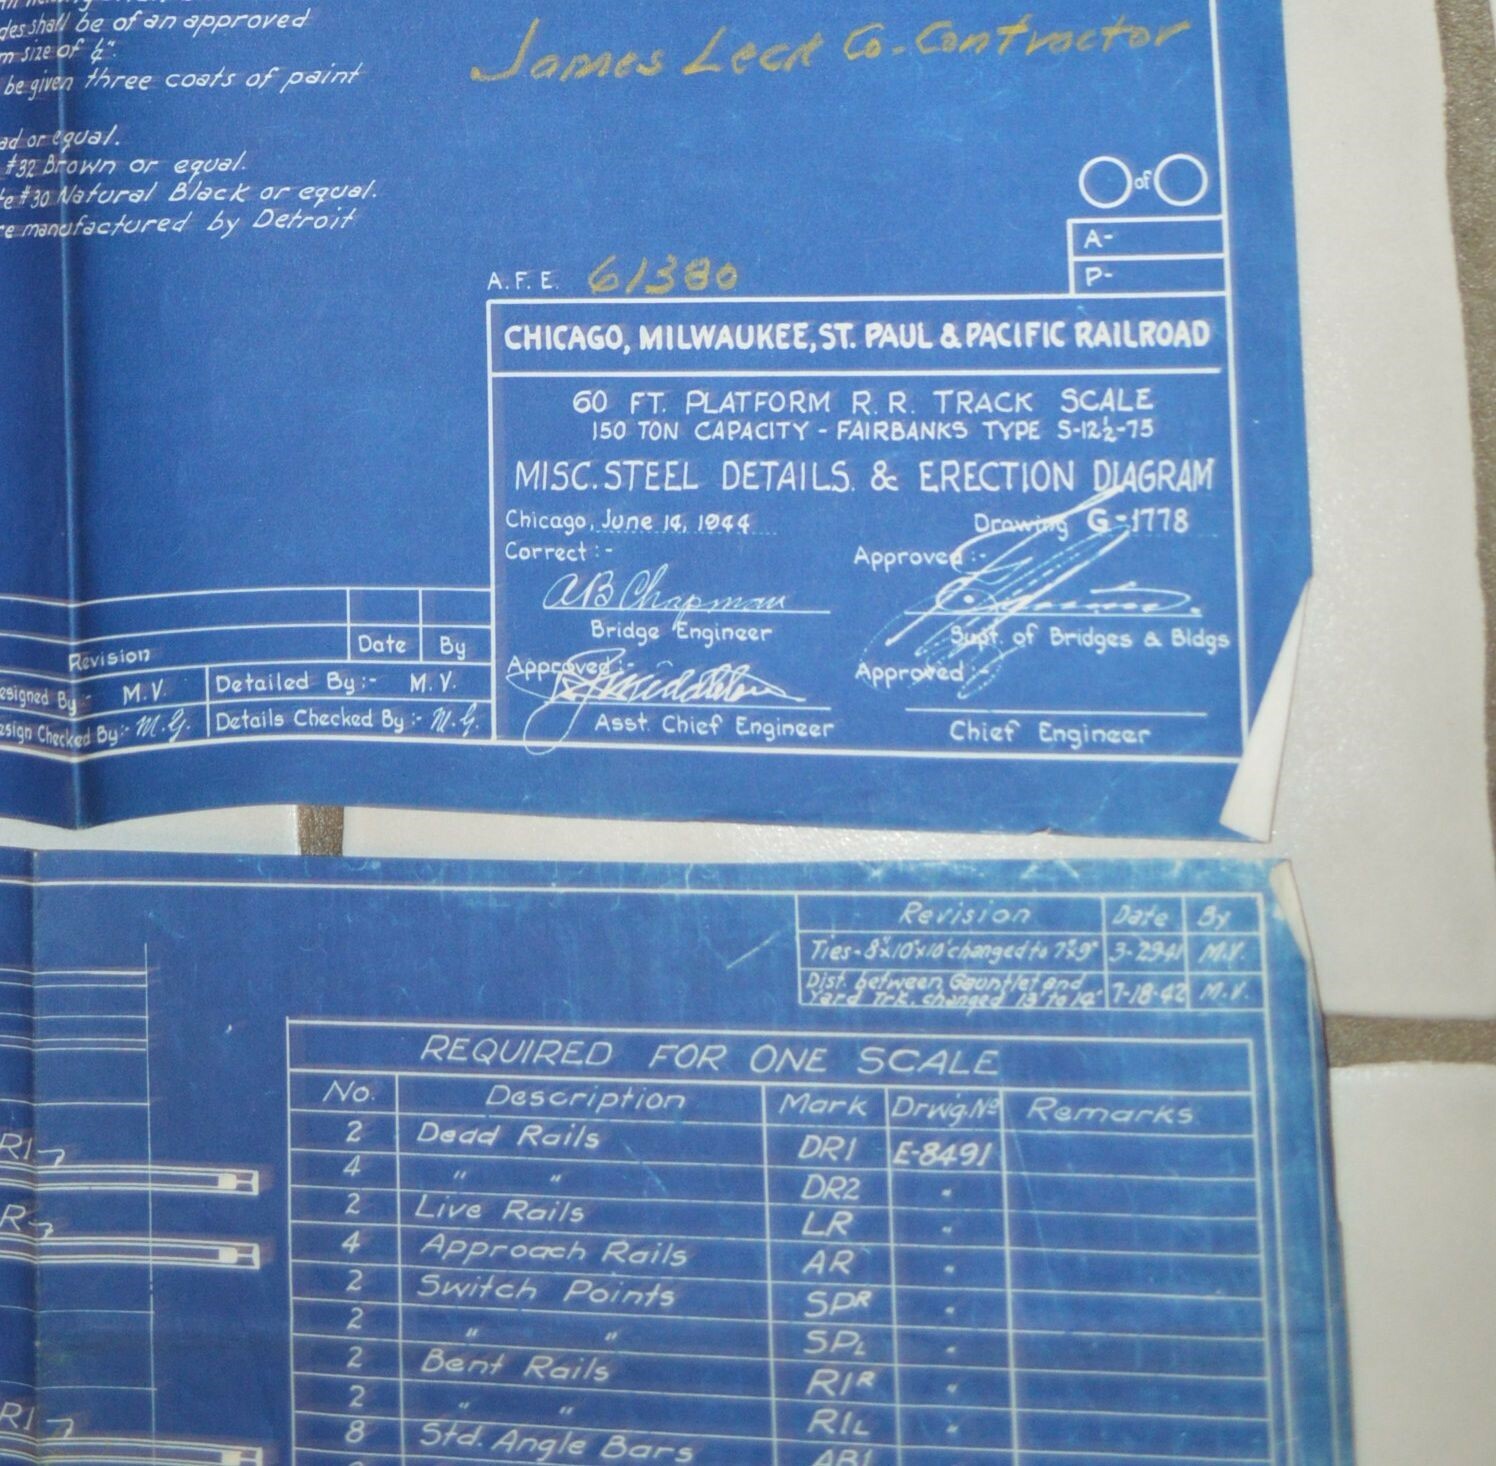 des shall be of an approved
m size of ¼".
be given three coats of paint
ad or equal.
#32 Brown or equal.
te #30 Natural Black or equal.
re manufactured by Detroit
James Leck Co-Contractor
of
A-
P-
A.F.E. 61380
CHICAGO, MILWAUKEE, ST. PAUL & PACIFIC RAILROAD
60 FT. PLATFORM R.R. TRACK SCALE
150 TON CAPACITY - FAIRBANKS TYPE S-12½-75
MISC. STEEL DETAILS. & ERECTION DIAGRAM
Chicago, June 14, 1944 Drawing G-1778
Correct:- Approved:-
AB Chapman
Bridge Engineer Supt. of Bridges & Bldgs
Approved:- Approved
Asst. Chief Engineer Chief Engineer
Revision Date By
esigned By:- M.V. Detailed By:- M.V.
esign Checked By:- M.G. Details Checked By:- M.G.
Revision Date By
Ties-8"x10"x10' changed to 7"x9" 3-29-41 M.V.
Dist. between Gauntlet and
Yard Trk. changed 13' to 14' 7-18-42 M.V.
REQUIRED FOR ONE SCALE
No. Description Mark Drwg.No Remarks
2 Dead Rails DR1 E-8491
4 " " DR2 "
2 Live Rails LR "
4 Approach Rails AR "
2 Switch Points SPR "
2 " " SPL "
2 Bent Rails R1R "
2 " " R1L "
8 Std. Angle Bars AB1
R1
R
R1